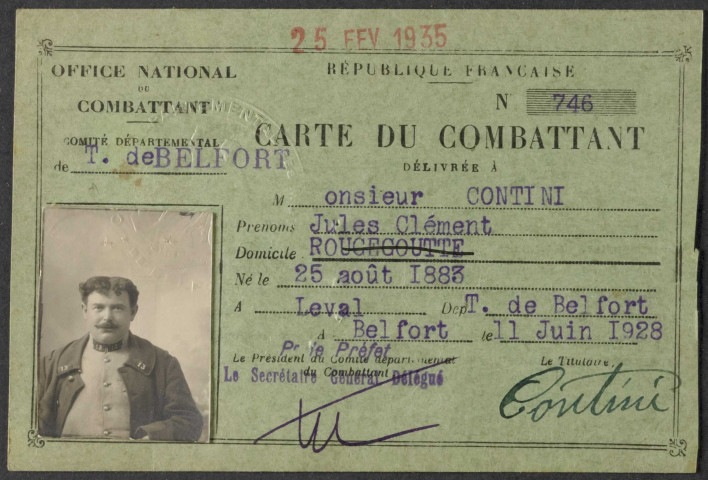 25 FEV 1935
OFFICE NATIONAL
DU
COMBATTANT
COMITÉ DÉPARTEMENTAL
de T. deBELFORT
RÉPUBLIQUE FRANCAISE
N 746
CARTE DU COMBATTANT
DÉLIVRÉE À
M onsieur CONTINI
Prenoms Jules Clément
Domicile ROUGEGOUTTE
Né le 25 août 1883
A Leval Dep T. de Belfort
A Belfort le 11 Juin 1928
Pr le Préfet
Le President du Comité départemental
du Combattant
Le Secrétaire Général Délégué
Le Titulaire,
Contini